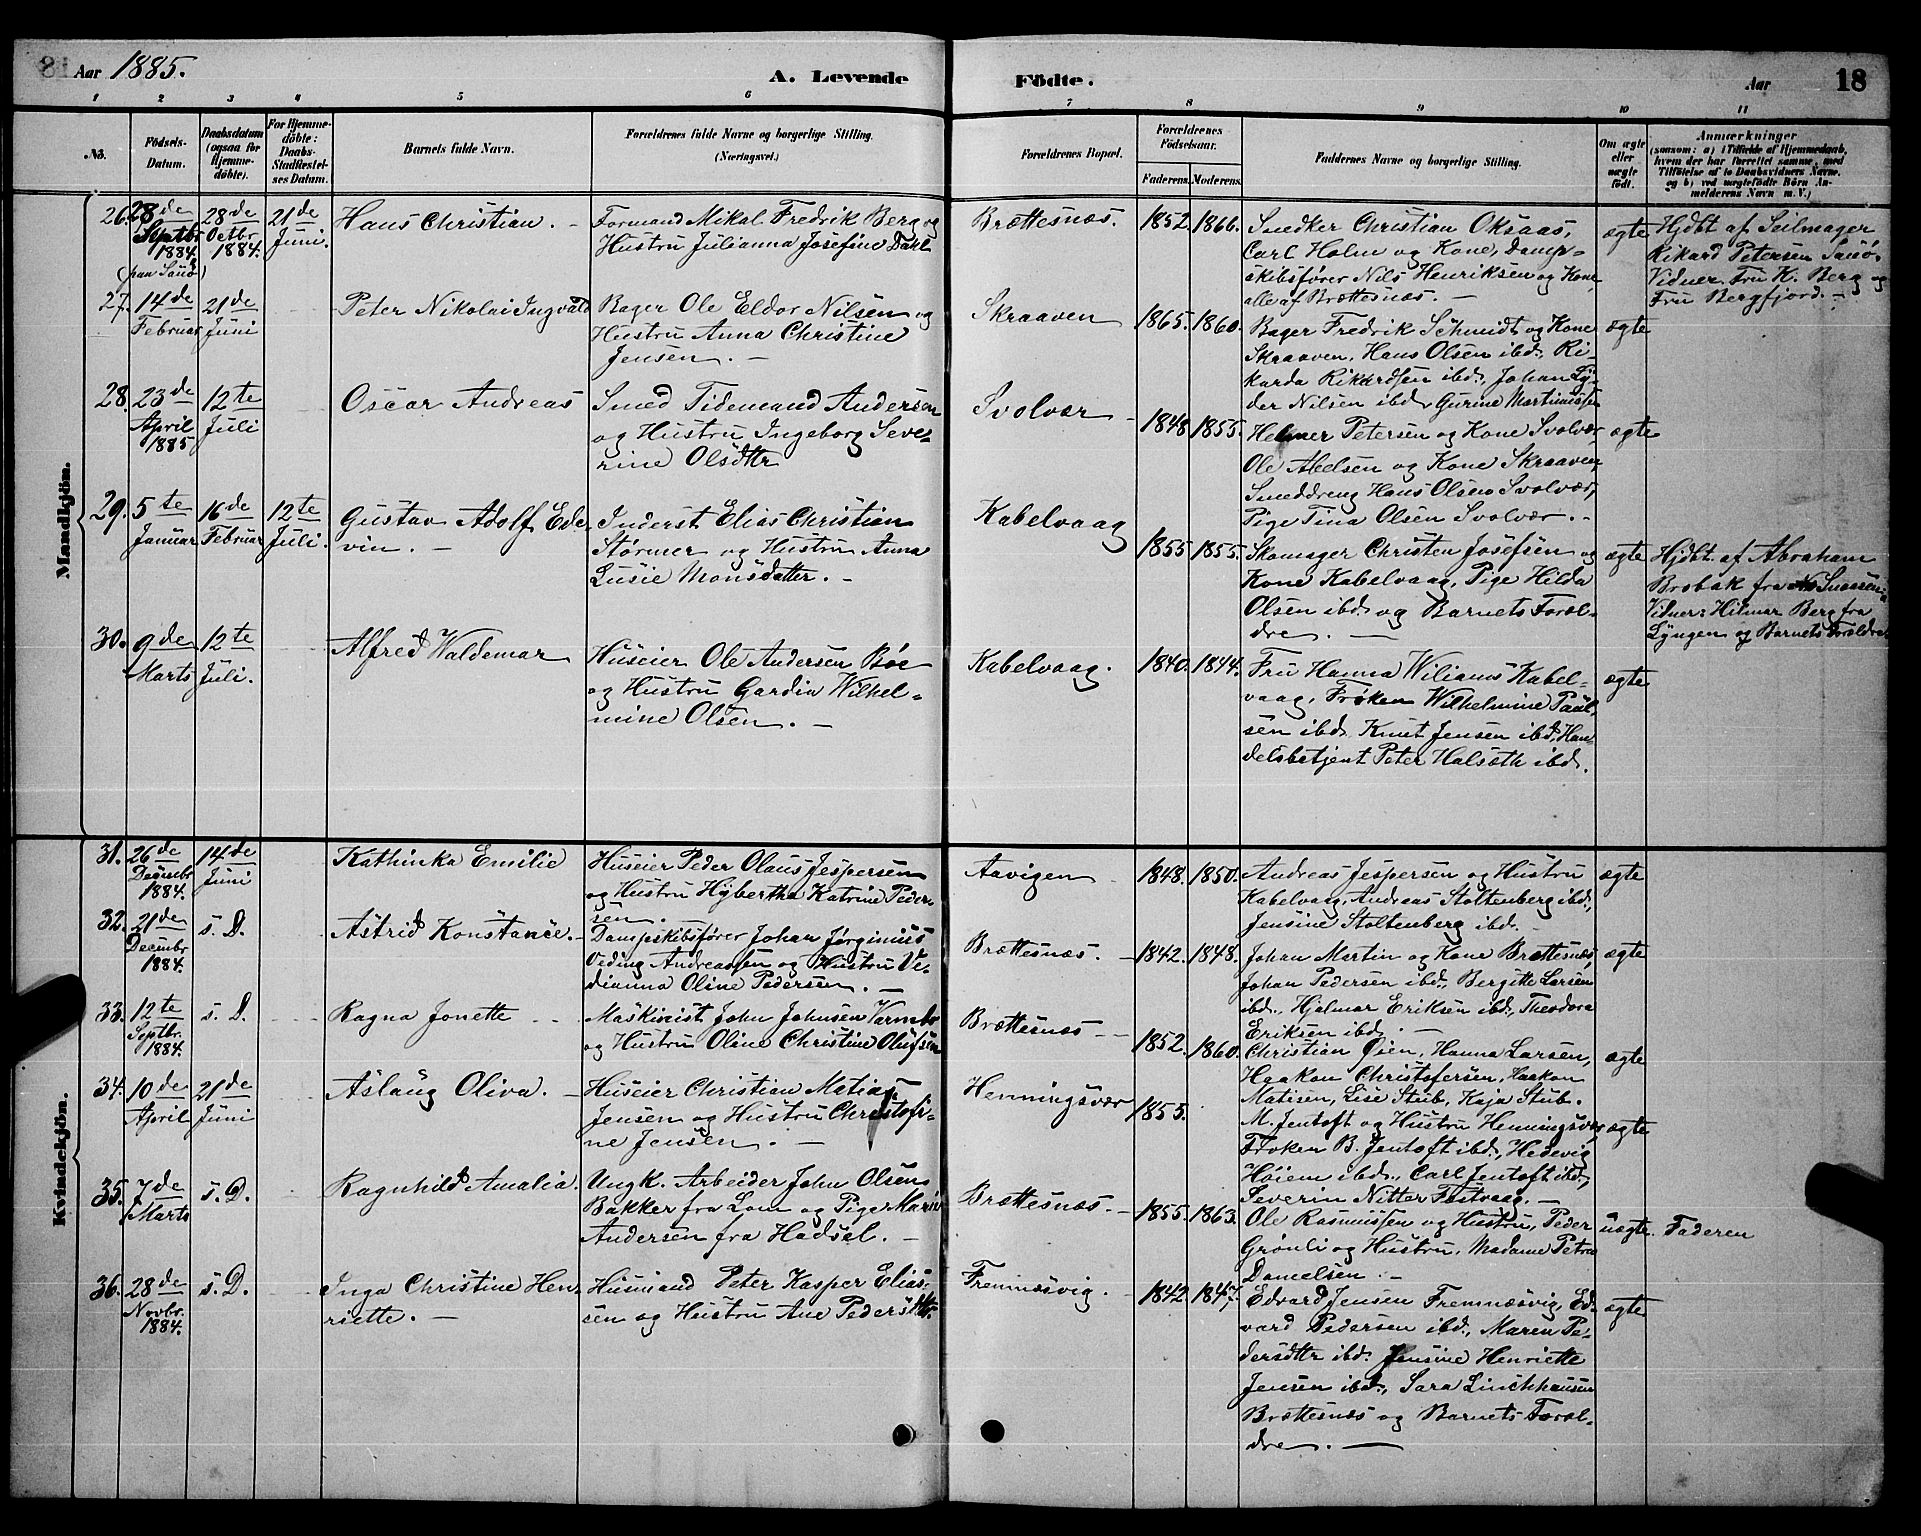 Aar 1885.
A. Levende Födte.
Aar 18
1 2 3 4 5 6 7 8 9 10 11
No. Födsels-Datum. Daabsdatum (ogsaa for Hjemmedöbte). For Hjemmedöbte: Daabs-Stadfæstelses Datum. Barnets fulde Navn. Forældrenes fulde Navne og borgerlige Stilling. (Næringsvei.) Forældrenes Bopæl. Forældrenes Födselsaar. Faderens. Moderens. Faddernes Navne og borgerlige Stilling. Om ægte eller uægte födt. Anmærkninger (saasom: a) i Tilfælde af Hjemmedaab, hvem der har forrettet samme, med Tilföielse af to Daabsvidners Navne, og b) ved uægtefödte Börn Anmelderens Navn m. V.)
Mandkjön.
26. 28de Septbr 1884. (paa Sauö) 28de Octbr. 1884. 21de Juni.
Hans Christian. –
Formand Mikal Fredrik Berg og
Hustru Julianna Josefine Dahl
Brættesnæs. 1852. 1866.
Snedker Christian Oksaas,
Carl Holm og Kone, Damp-
skibsfører Nils Henriksen og Kone
alle af Brættesnæs. –
ægte
Hjdbt af Seilmager
Rikard Petersen Sauö,
Vidner Fru K. Berg og
Fru Bergfjord. –
27. 14de Februar 21de Juni
Peter Nikolai Ingvald
Bager Ole Eldor Nilsen og
Hustru Anna Christine
Jensen. –
Skraaven 1865. 1860.
Bager Fredrik Schmidt og Kone
Skraaven, Hans Olsen ibd., Ri-
karda Rikardsen ibd., Johan Ly-
der Nilsen ibd, Gurine Martinussen
ægte
28. 23de April 1885 12te Juli
Oscar Andreas
Smed Tidemand Andersen
og Hustru Ingeborg Seve-
rine Olsdttr
Svolvær – 1848 1855.
Helmer Petersen og Kone Svolvær,
Ole Abelsen og Kone Skraaven,
Smeddreng Hans Olsen Svolvær,
Pige Tina Olsen Svolvær. –
ægte
29. 5te Januar 16de Februar 12te Juli.
Gustav Adolf Ed-
vin. –
Inderst Elias Christian
Størmer og Hustru Anna
Lusie Monsdatter. –
Kabelvaag 1855 1855.
Skomager Christen Josefsen og
Kone Kabelvaag, Pige Hilda
Olsen ibd. og Barnets Foræl-
dre. –
ægte
Hjdbt. af Abraham
Brobak fra Snaasen
Vidner: Hilmar Berg fra
Lyngen og Barnets Forældre
30. 9de Marts 12te Juli.
Alfred Waldemar
Huseier Ole Andersen Böe
og Hustru Gardia Wilhel-
mine Olsen. –
Kabelvaag. 1840. 1844.
Fru Hanna Wiliams Kabel-
vaag, Frøken Wilhelmine Paul-
sen ibd. Knut Jensen ibd, Han-
delsbetjent Peter Halsæth ibd.
ægte
Kvindekjön.
31. 26de Decmbr 1884. 14de Juni
Kathinka Emilie
Huseier Peder Olaus Jespersen
og Hustru Hybertha Katrine Peder-
sen. –
Aavigen – 1848. 1850.
Andreas Jespersen og Hustru
Kabelvaag, Andreas Stoltenberg ibd.,
Jensine Stoltenberg ibd. –
ægte
32. 21de Decmbr 1884. s. D.
Astrid Konstance. –
Dampskibsfører Johan Jørginius
Veding Andreassen og Hustru Ve-
dianna Oline Pedersen. –
Brættesnæs. – 1842. 1848.
Johan Martin og Kone Brættesnæs,
Johan Pedersen ibd., Bergitte Larsen
ibd., Hjalmar Eriksen ibd., Theodora
Eriksen ibd. –
ægte
33. 12te Septbr. 1884. s. D.
Ragna Jonette
Maskinist John Johnsen Varmbo
og Hustru Oline Christine Olufsen
Brættesnæs – 1852. 1860.
Christian Øien, Hanna Larsen,
Haakon Christofersen, Haakon
Matisen, Lise Stub, Kaja Stub.
ægte
34. 10de April 21de Juni
Aslaug Oliva. –
Huseier Christian Matias
Jensen og Hustru Christofi-
ne Jensen. –
Henningsvær 1855.
M. Jentoft og Hustru Henningsvær,
Frøken B. Jentoft ibd., Hedevig
Høiem ibd., Carl Jentoft ibd.,
Severin Nitter Festvaag. –
ægte
35. 7de Marts s. D.
Ragnhild Amalia.
Ungk. Arbeider John Olsen
Bakker fra Lom og Pige Marie
Andersen fra Hadsel. –
Brættesnæs. – 1855. 1863.
Ole Rasmussen og Hustru, Peder
Grønli og Hustru, Madame Petra
Danielsen. –
uægte. Faderen
36. 28de Novbr. 1884. s. D.
Inga Christine Hen-
riette. –
Husmand Peter Kasper Elias-
sen og Hustru Ane Pedersdttr.
Fremnæsvig. – 1842 1847.
Edvard Jensen Fremnæsvig, Ed-
vard Pedersen ibd., Maren Pe-
dersdttr ibd. Jensine Henriette
Jensen ibd., Sara Linchhausen
Brættesnæs og Barnets Foræl-
dre. –
ægte